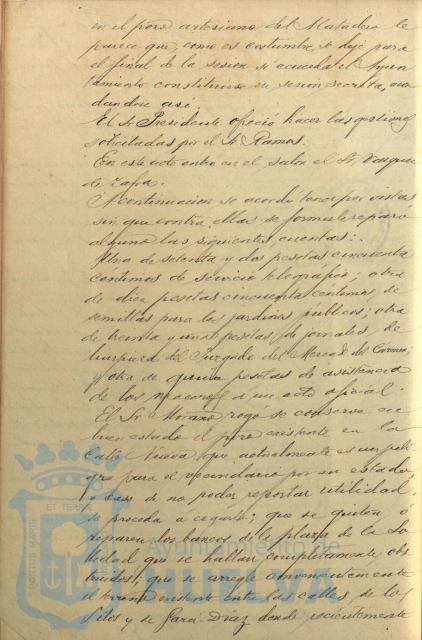 en el pozo artesiano del Matadero le
parece que, como es costumbre, se deje para
el final de la sesión si acuerda el Ayun
tamiento constituirse en sesión secreta, acor
dandose así.
El Sr. Presidente ofreció hacer las gestiones
solicitadas por el Sr. Ramos.
En este acto entró en el salon el Sr. Vazquez
de Zafra.
A continuación se acordó tener por vistas
sin que contra ellas se formule reparo
alguno las siguientes cuentas:
Una de setenta y dos pesetas cincuenta
céntimos de servicio telegrafico; otra
de diez pesetas cincuenta céntimos, de
semillas para los jardines publicos; otra
de treinta y una pesetas, de jornales, de
limpieza del Juzgado del Mercado del Carmen;
y otra de quince pesetas de asistencia
de los maceros a un acto oficial.
El Sr. Morano rogó se conserve en
buen estado el pozo existente en la
Calle Nueva que actualmente es un peli
gro para el vecindario por su estado,
o caso de no poder reportar utilidad
se proceda á cegarlo; que se quiten ó
reparen los bancos de la plaza de la So
ledad que se hallan completamente obs
truidos; que se arregle convenientemente
el terreno existente entre las calles de los
Silos y de Garci Diaz donde recientemente
PORTUS MARIS ET TERRAE
Ayuntamiento de
HUELVA